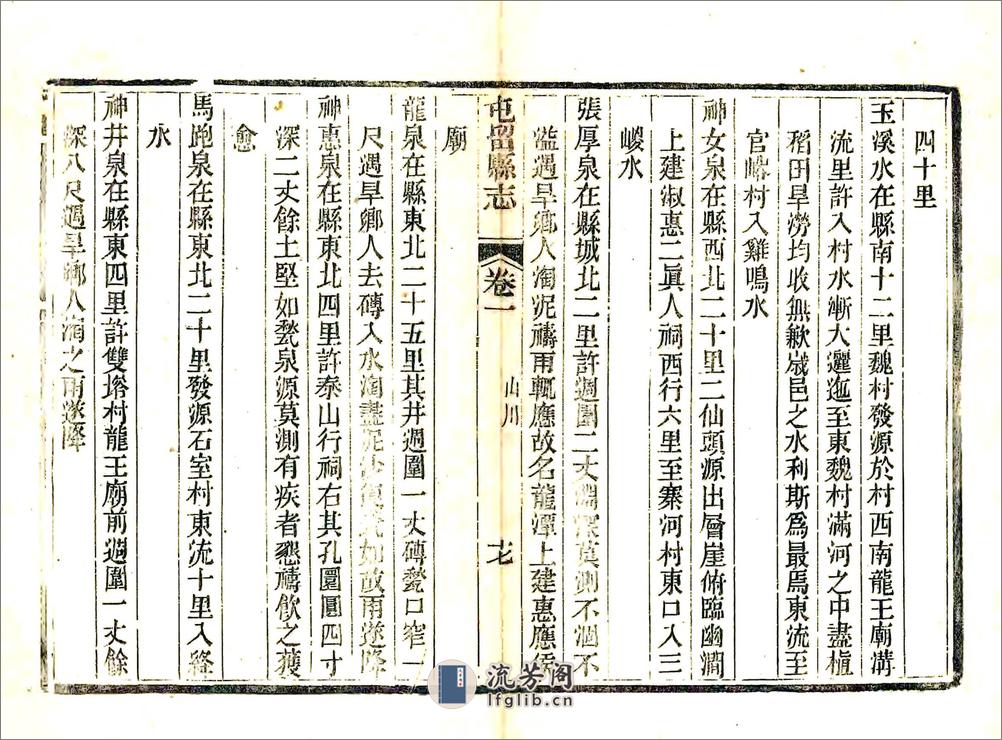 四十里
玉溪水在縣南十二里魏村發源於村西南龍王廟溝
流里許入村水漸大邐迤至東魏村滿河之中盡植
稻田旱澇均收無歉歲邑之水利斯為最焉東流至
官𡺚村入雞鳴水
神女泉在縣西北二十里二仙頭源出層崖俯臨幽澗
上建淑惠二眞人祠西行六里至寨河村東口入三
嵕水
張厚泉在縣城北二里許週圍二丈淵深莫測不涸不
溢遇旱鄉人淘泥禱雨輒應故名龍潭上建惠應侯
廟
屯留縣志
卷一
山川
龍泉在縣東北二十五里其井週圍一丈磚甃口窄一
尺遇旱鄉人去磚入水淘盡泥沙甃如故雨遂降
神惠泉在縣東北四里許泰山行祠右其孔圓圍四寸
深二丈餘土堅如甃泉源莫測有疾者懇禱飲之獲
愈
馬跑泉在縣東北二十里發源石室村東流十里入絳
水
神井泉在縣東四里許雙塔村龍王廟前週圍一丈餘
深八尺遇旱鄉人淘之雨遂降
流芳阁
lfglib.cn